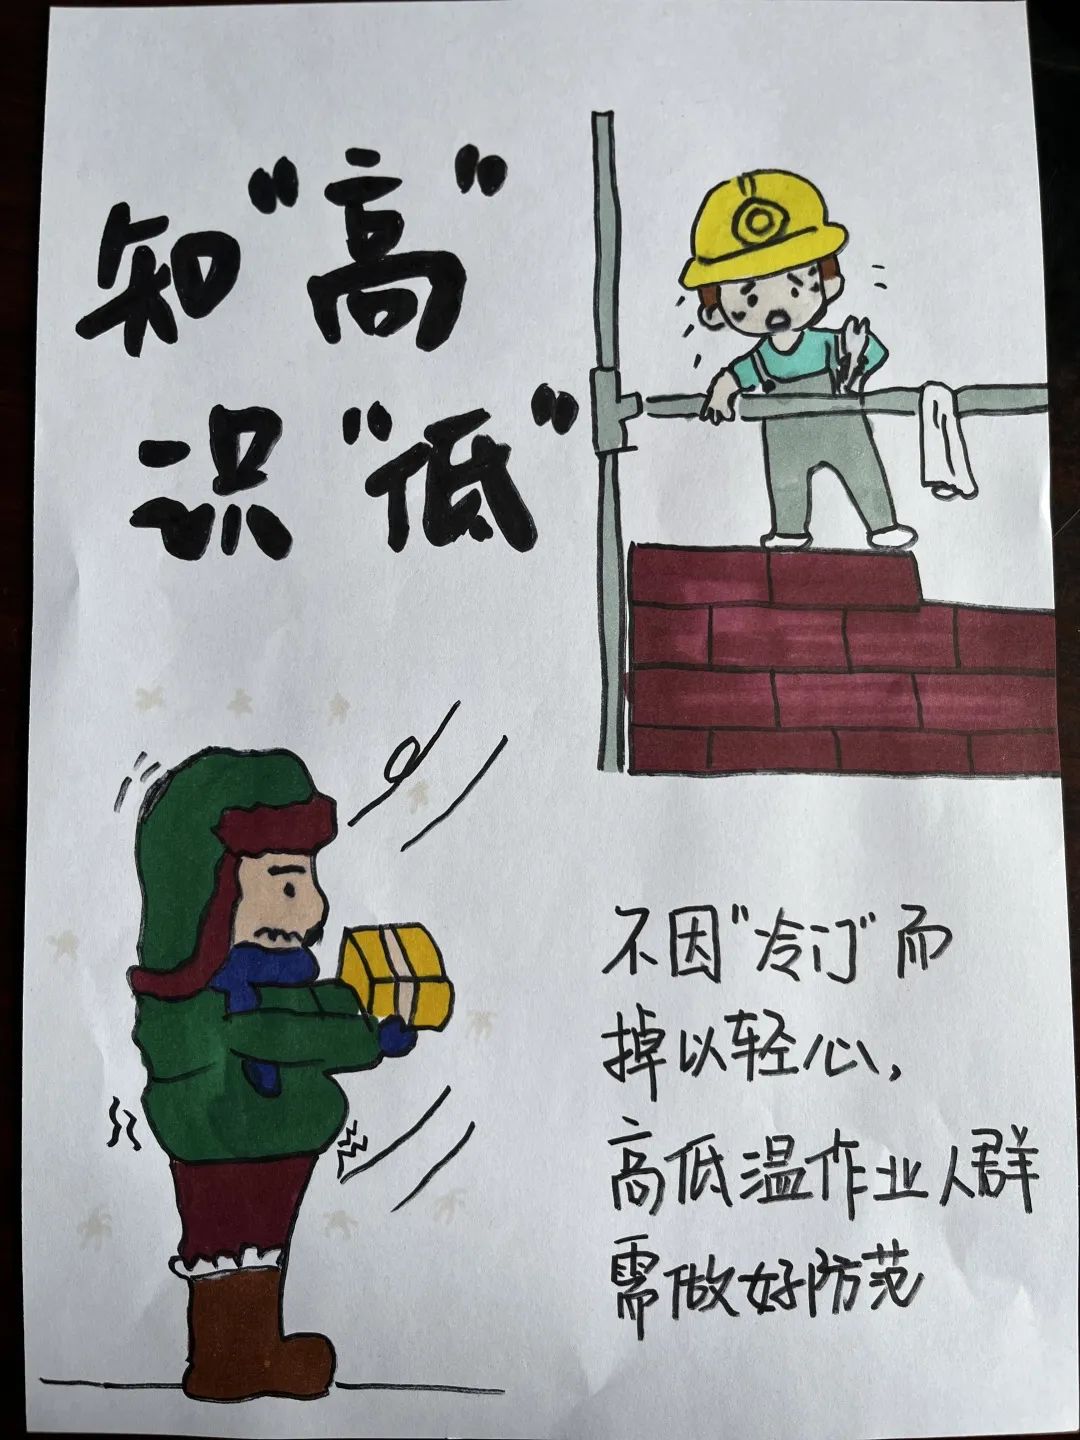 知"高"
识"低"
不因"冷门"而
掉以轻心,
高低温作业人群
需做好防范